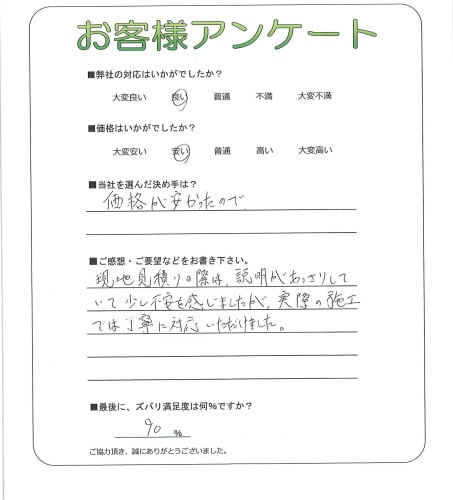 お客様アンケート
■弊社の対応はいかがでしたか?
大変良い 良い 普通 不満 大変不満
■価格はいかがでしたか?
大変安い 安い 普通 高い 大変高い
■当社を選んだ決め手は?
価格が安かったので
■ご感想・ご要望などをお書き下さい。
現地見積りの際は、説明があっさりして
いて少し不安を感じましたが、実際の施工
では丁寧に対応いただけました。
■最後に、ズバリ満足度は何%ですか?
90 %
ご協力頂き、誠にありがとうございました。